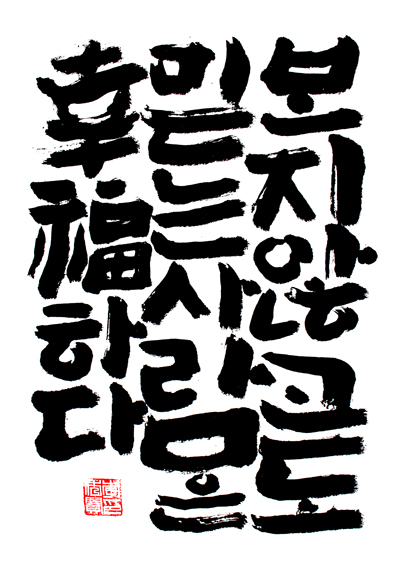 보지않고도
믿는사람은
幸福하다